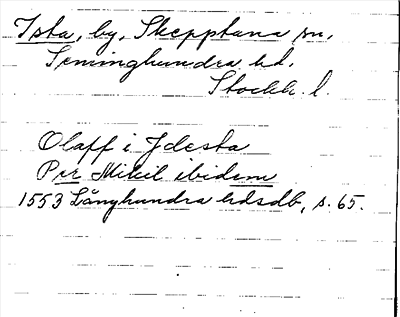 Ista, by, Skepptuna sn,
Seminghundra hd,
Stockh. l.
Olaff i Jdesta
Per Mikil ibidem
1553 Långhundra hdsdb, s. 65.